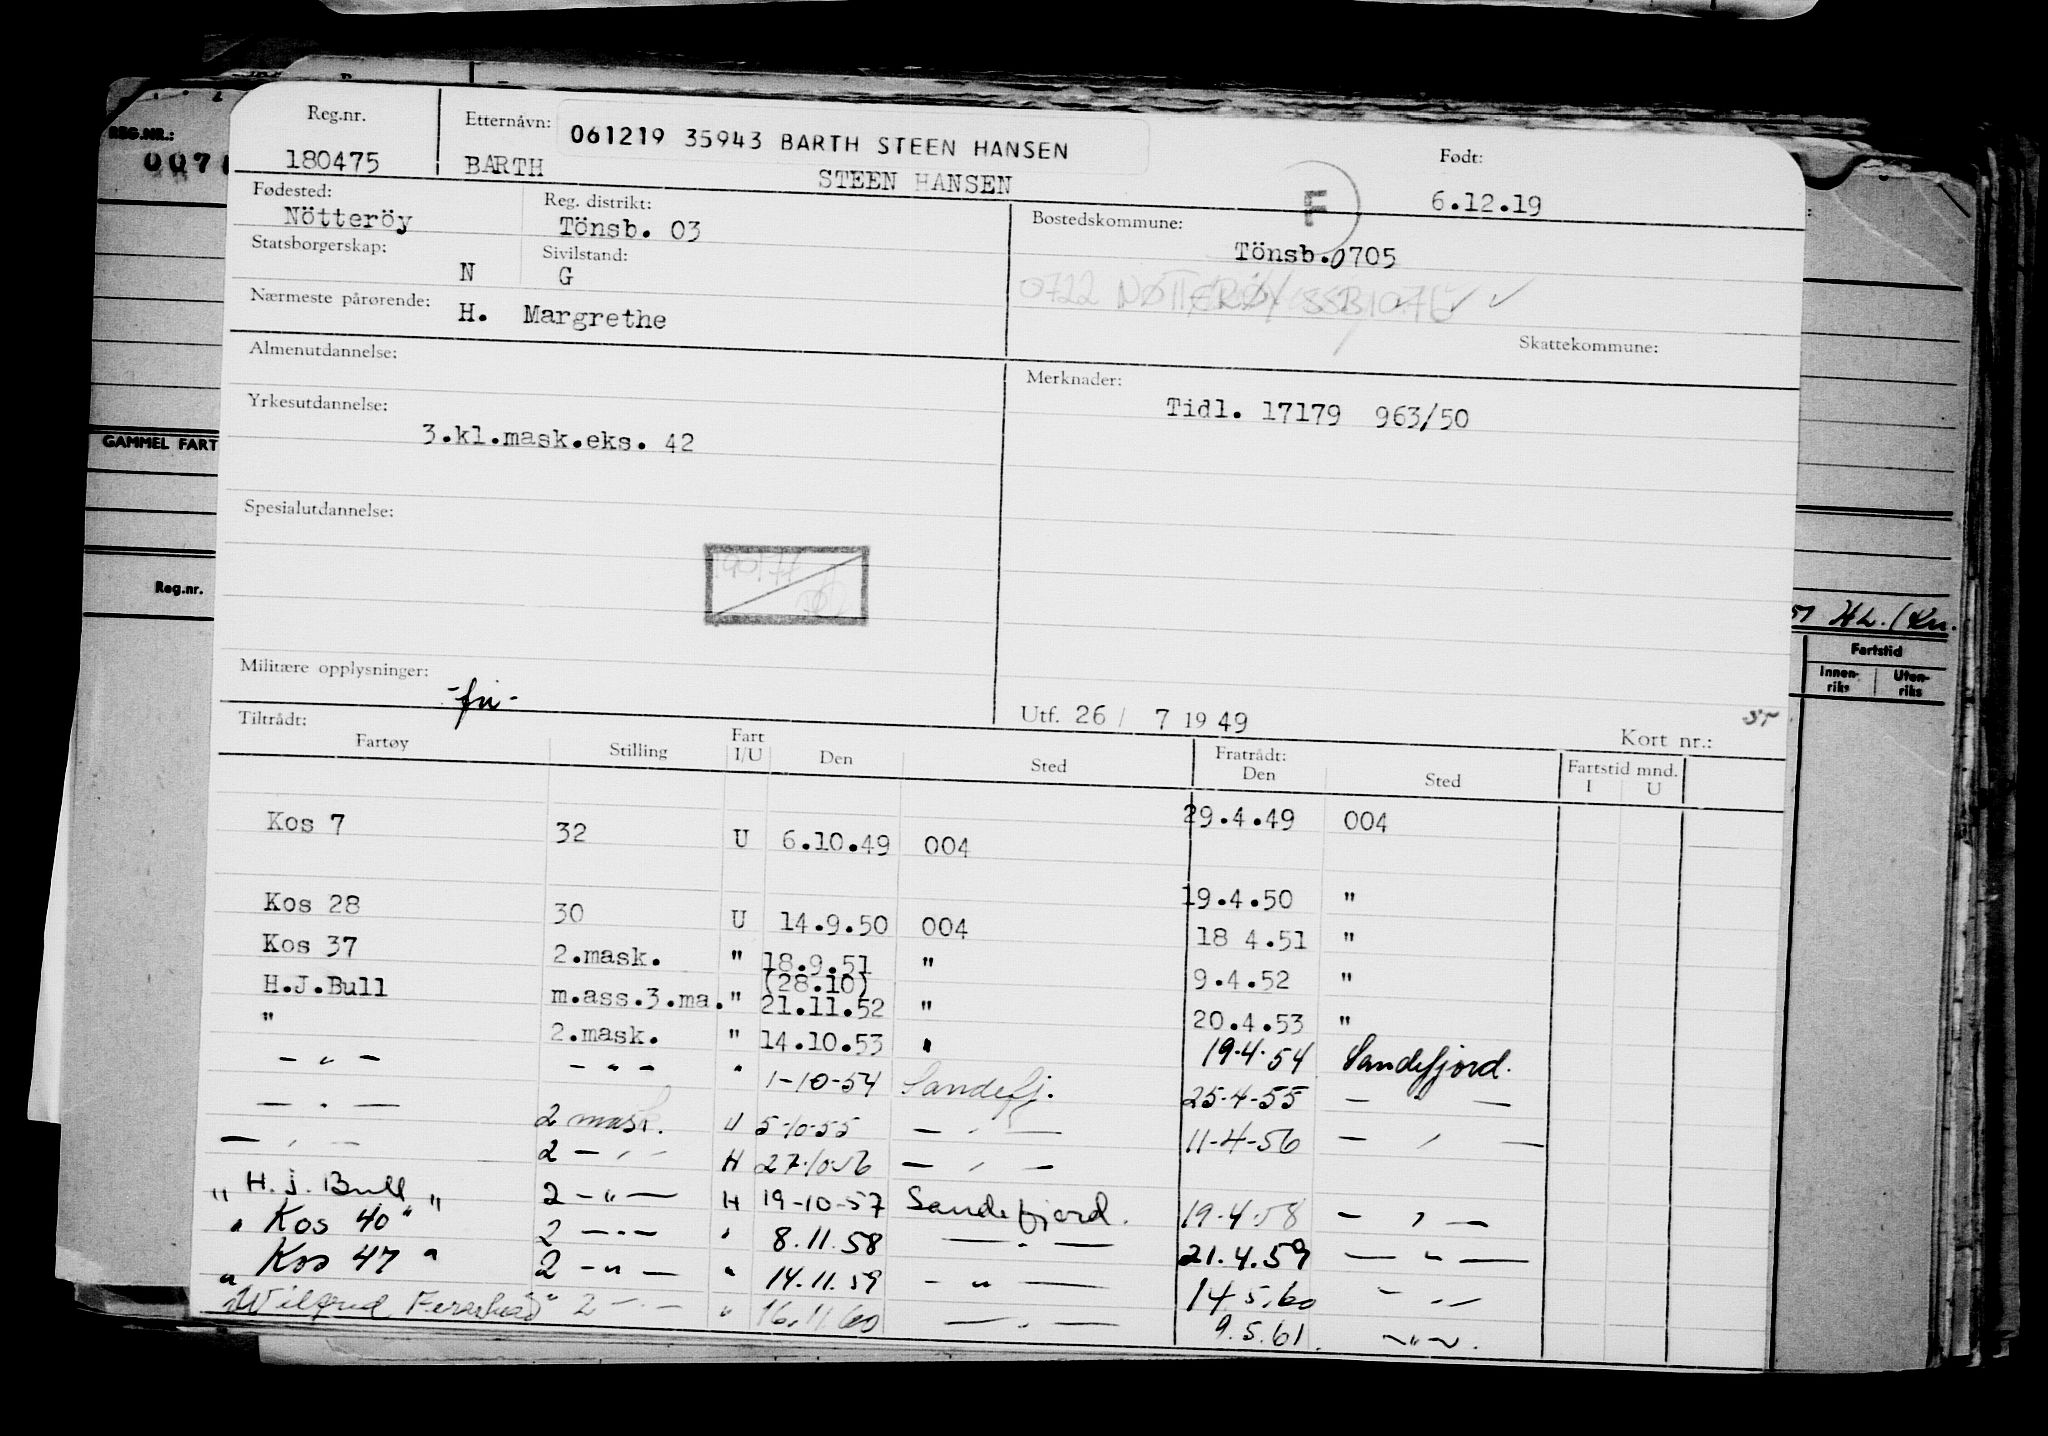 REG.NR.:
007
GAMMEL FART
Reg.nr.
Reg.nr.
180475
Etternåvn:
061219 35943 BARTH STEEN HANSEN
BARTH STEEN HANSEN
Født:
6.12.19
F
Fødested:
Nötteröy
Reg. distrikt:
Tönsb. 03
Bostedskommune:
Tönsb.0705
0722 NØTTERØY
Statsborgerskap:
N
Sivilstand:
G
Nærmeste pårørende:
H. Margrethe
Skattekommune:
Almenutdannelse:
Merknader:
Tidl. 17179 963/50
Yrkesutdannelse:
3.kl.mask.eks. 42
Spesialutdannelse:
Militære opplysninger:
Utf. 26/ 7 19 49
Kort nr.:
Fartstid
Innen-riks Uten-riks
Tiltrådt: Fratrådt:
Fartøy Stilling Fart I/U Den Sted Den Sted Fartstid mnd. I U
29.4.49 004
Kos 7 32 U 6.10.49 004
19.4.50 "
Kos 28 30 U 14.9.50 004 18 4.51 "
Kos 37 2.mask. " 18.9.51 " 9.4.52 "
(28.10)
H.J.Bull m.ass.3.ma. " 21.11.52 " 20.4.53 "
" 2.mask. " 14.10.53 " 19.4.54 Sandefjord.
— " — — " — " 1-10-54 Sandefj. 25-4-55 — " —
— " — 2 mask. U 5-10-55 — " — 11-4-56 — " —
— " — 2 — " — H 27.10.56 — " —
" H. J. Bull " 2 — " — H 19-10-57 Sandefjord. 19.4.58 — " —
" Kos 40 " 2 — " — " 8.11.58 — " — 21.4.59 — " —
" Kos 47 " 2 — " — " 14.11.59 — " — 14.5.60 — " —
2 — " — " 16.11.60 — " — 9.5.61. — " —.